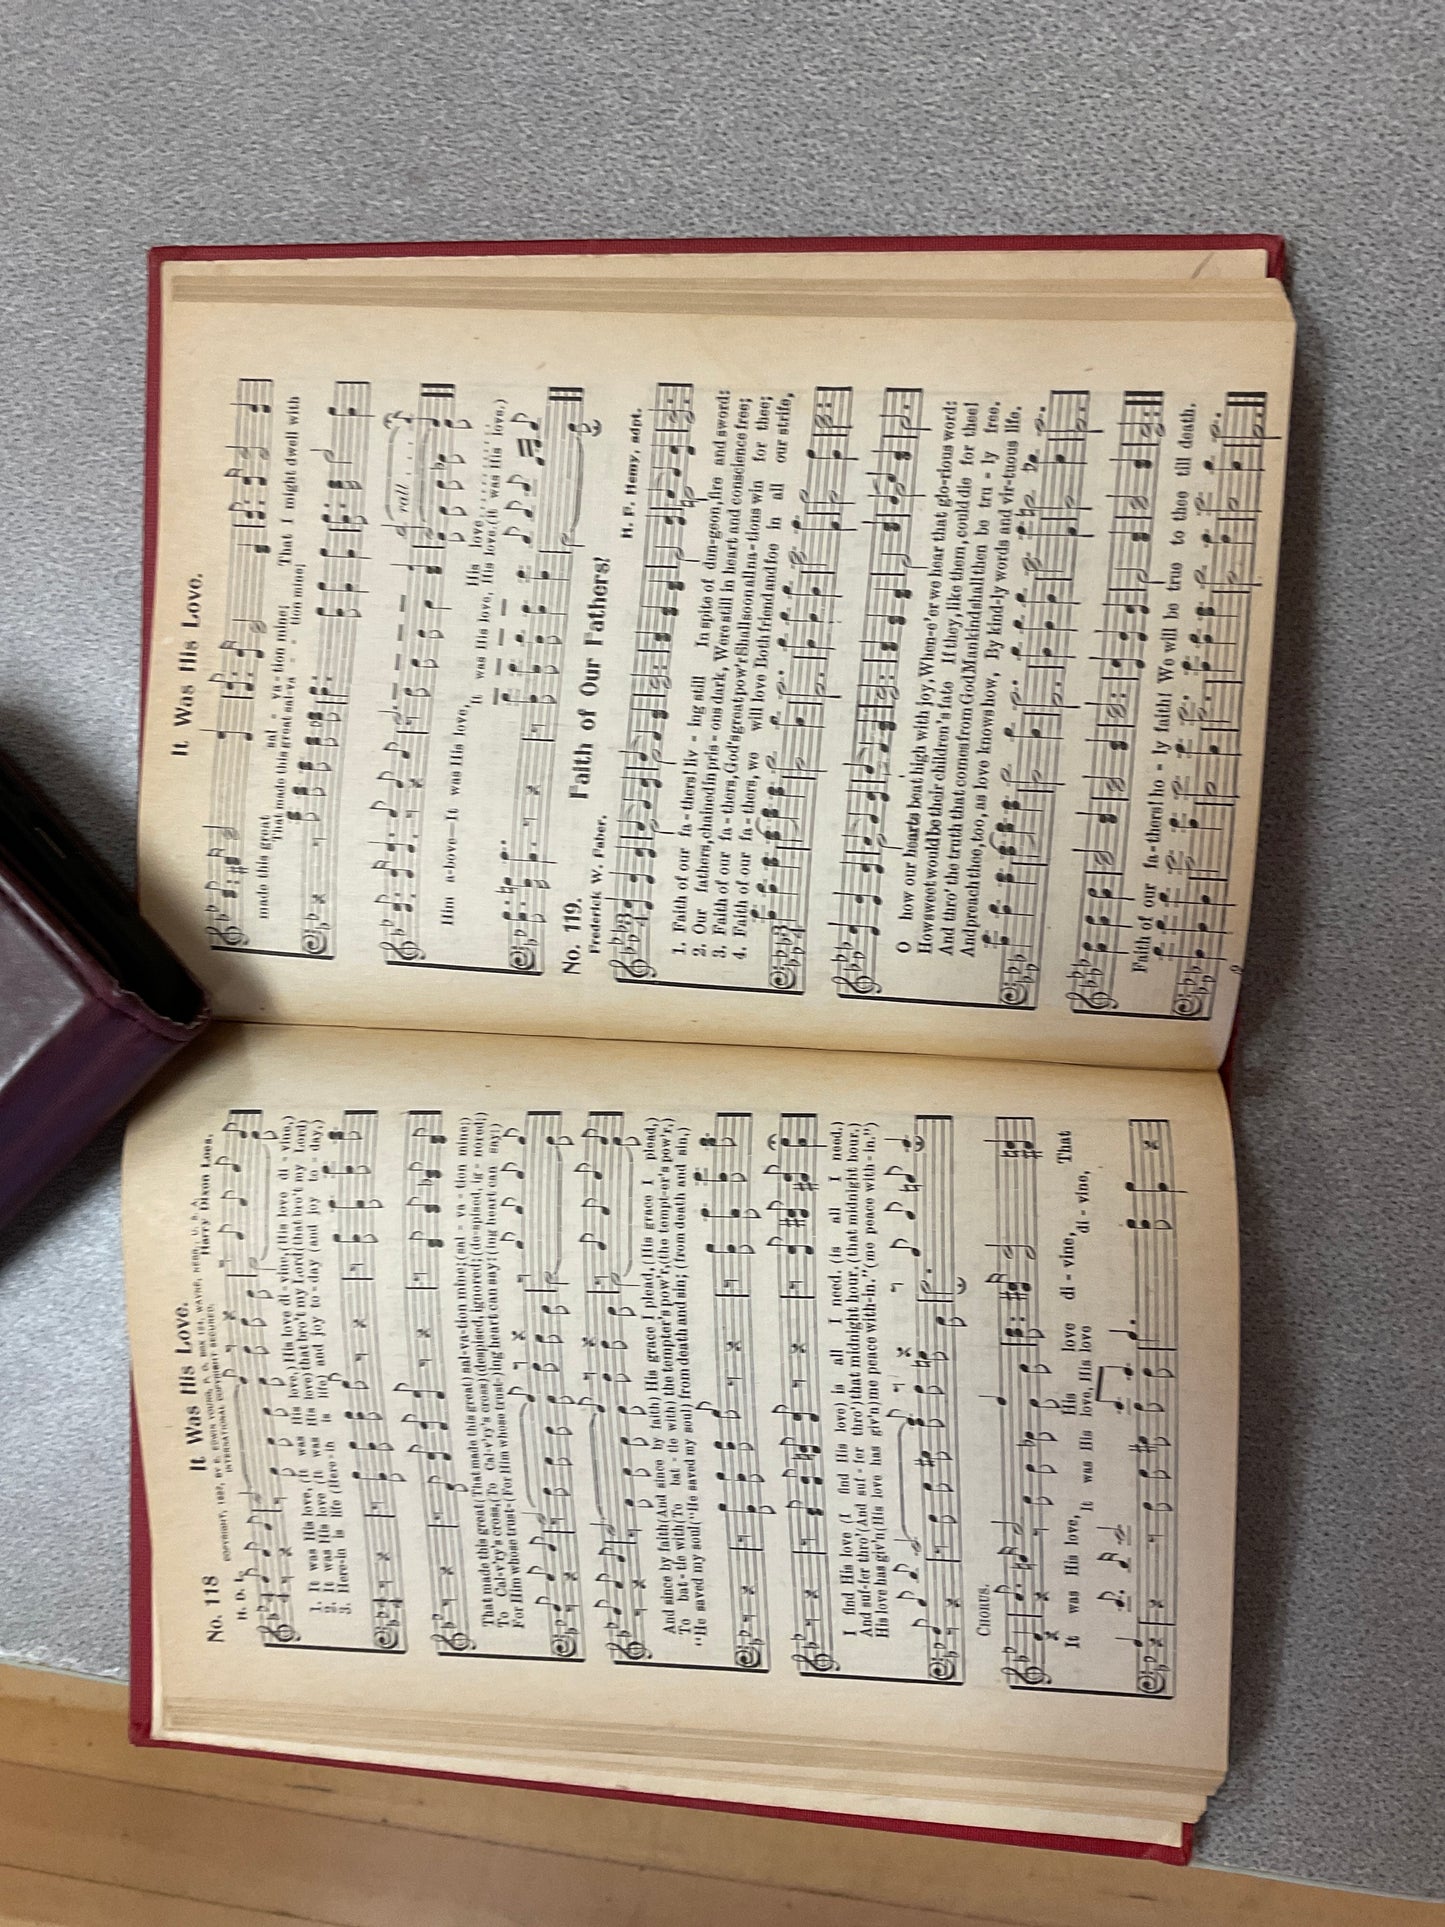 No. 118
It Was His Love.
COPYRIGHT, 1922, BY E. EDWIN YOUNG, P. O. BOX 124, WAYNE, NEBR., U. S. A.
INTERNATIONAL COPYRIGHT SECURED.
H. D. L.
Harry Dixon Loes.
1. It was His love, (it was His love,) His love di - vine, (His love di - vine,)
2. It was His love (it was His love) that bro't my Lord (that bro't my Lord)
3. Here-in is life (Here-in is life) and joy to - day (and joy to - day,)
That made this great (That made this great) sal-va-tion mine; (sal - va - tion mine;)
To Cal-v'ry's cross, (To Cal-v'ry's cross) despised, ignored; (de-spised, ig - nored;)
For Him whose trust- (For Him whose trust-) ing heart can say: (ing heart can say:)
And since by faith (And since by faith) His grace I plead, (His grace I plead,)
To bat - tle with (To bat - tle with) the tempter's pow'r, (the tempt-er's pow'r,)
"He saved my soul ("He saved my soul) from death and sin; (from death and sin,)
I find His love (I find His love) is all I need. (is all I need.)
And suf-fer thro' (And suf - fer thro') that midnight hour. (that midnight hour.)
His love has giv'n (His love has giv'n) me peace with-in." (me peace with-in.")
CHORUS.
It was His love, His love di - vine, That
It was His love, His love di - vine,
It Was His Love.
made this great sal - va-tion mine; That I might dwell with
That made this great sal-va - - tion mine;
rall . . .
Him a-bove—It was His love, His love . . . . . . . .
It was His love, His love. (it was His love.)
No. 119.
Faith of Our Fathers!
Frederick W. Faber.
H. F. Hemy, adpt.
1. Faith of our fa - thers! liv - ing still In spite of dun-geon, fire and sword:
2. Our fathers, chained in pris - ons dark, Were still in heart and conscience free;
3. Faith of our fa - thers, God's great pow'r Shall soon all na-tions win for thee;
4. Faith of our fa - thers, we will love Both friend and foe in all our strife,
O how our hearts beat high with joy, When-e'er we hear that glo-rious word:
How sweet would be their children's fate If they, like them, could die for thee!
And thro' the truth that comes from God Mankind shall then be tru - ly free.
And preach thee, too, as love knows how, By kind-ly words and vir-tuous life.
Faith of our fa-thers! ho - ly faith! We will be true to thee till death.
9